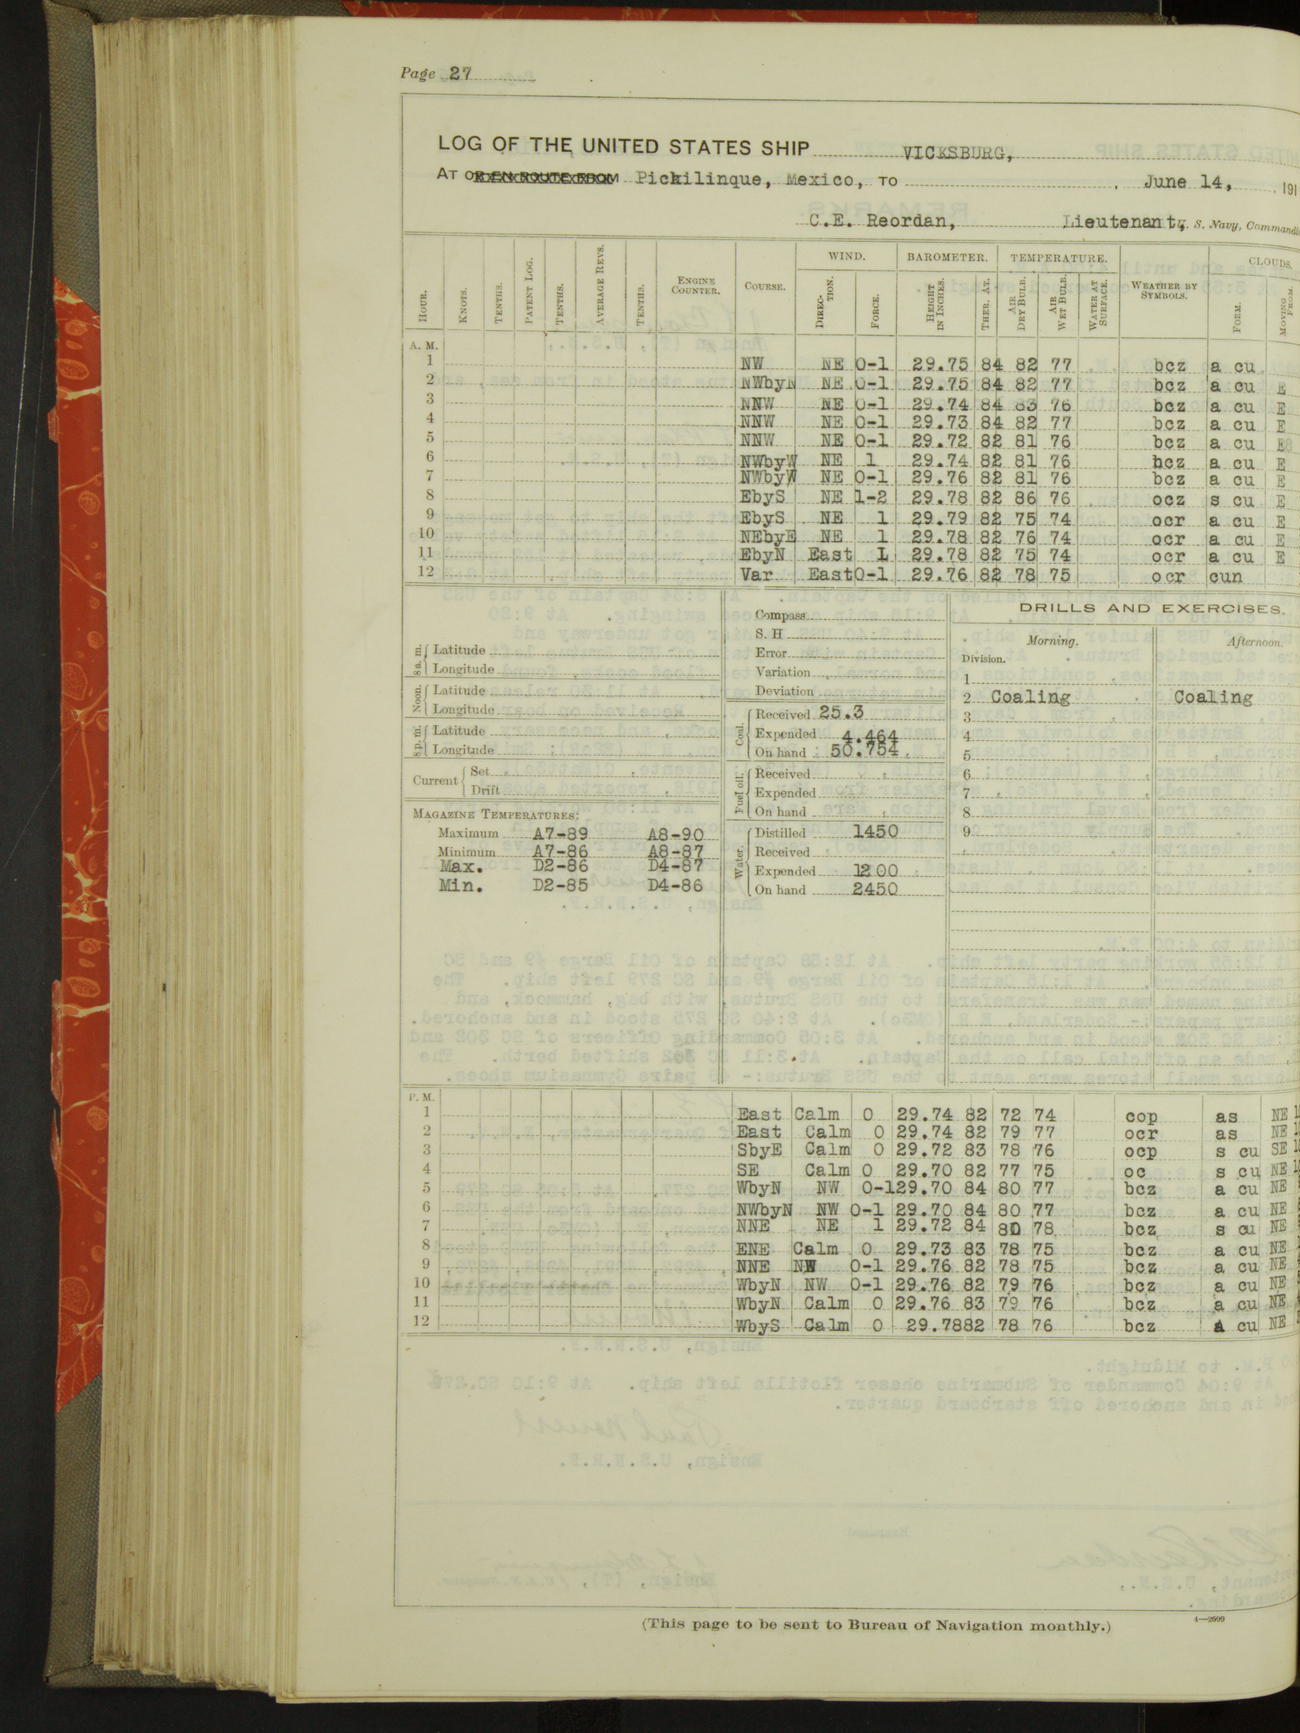 Page 27
LOG OF THE UNITED STATES SHIP VICKSBURG,
AT OR EN ROUTE FROM Pickilinque, Mexico, TO , June 14, , 191
C.E. Reordan, Lieutenant, S. Navy, Commandi
HOUR. KNOTS. TENTHS. PATENT LOG. TENTHS. AVERAGE REVS. TENTHS. ENGINE COUNTER. COURSE. WIND. DIRECTION. FORCE. BAROMETER. HEIGHT IN INCHES. THER. AT. TEMPERATURE. AIR DRY BULB. AIR WET BULB. WATER AT SURFACE. WEATHER BY SYMBOLS. CLOUDS. FORM. MOVING FROM.
A. M.
1 NW NE 0-1 29.75 84 82 77 bcz a cu
2 NWbyN NE 0-1 29.75 84 82 77 bcz a cu E
3 NNW NE 0-1 29.74 84 83 76 bcz a cu E
4 NNW NE 0-1 29.73 84 82 77 bcz a cu E
5 NNW NE 0-1 29.72 82 81 76 bcz a cu
6 NWbyW NE 1 29.74 82 81 76 bcz a cu E
7 NWbyW NE 0-1 29.76 82 81 76 bcz a cu E
8 EbyS NE 1-2 29.78 82 86 76 ocz s cu E
9 EbyS NE 1 29.79 82 75 74 ocr a cu E
10 NEbyE NE 1 29.78 82 76 74 ocr a cu E
11 EbyN East 1 29.78 82 75 74 ocr a cu E
12 Var East 0-1 29.76 82 78 75 ocr cun
8 a. m. Latitude
Longitude
Noon. Latitude
Longitude
8 p. m. Latitude
Longitude
Current Set
Drift
MAGAZINE TEMPERATURES:
Maximum A7-89 A8-90
Minimum A7-86 A8-87
Max. D2-86 D4-87
Min. D2-85 D4-86
Compass
S. H
Error
Variation
Deviation
Coal. Received 25.3
Expended 4.464
On hand 50.754
Fuel oil. Received
Expended
On hand
Water. Distilled 1450
Received
Expended 1200
On hand 2450
DRILLS AND EXERCISES.
Morning. Afternoon.
Division.
1
2 Coaling Coaling
3
4
5
6
7
8
9
P. M.
1 East Calm 0 29.74 82 72 74 cop as NE
2 East Calm 0 29.74 82 79 77 ocr as NE
3 SbyE Calm 0 29.72 83 78 76 ocp s cu SE
4 SE Calm 0 29.70 82 77 75 oc s cu NE
5 WbyN NW 0-1 29.70 84 80 77 bcz a cu NE
6 NWbyN NW 0-1 29.70 84 80 77 bcz a cu NE
7 NNE NE 1 29.72 84 80 78 bcz s cu NE
8 ENE Calm 0 29.73 83 78 75 bcz a cu NE
9 NNE NW 0-1 29.76 82 78 75 bcz a cu NE
10 WbyN NW 0-1 29.76 82 79 76 bcz a cu NE
11 WbyN Calm 0 29.76 83 79 76 bcz a cu NE
12 WbyS Calm 0 29.78 82 78 76 bcz A cu NE
(This page to be sent to Bureau of Navigation monthly.)
4—2509